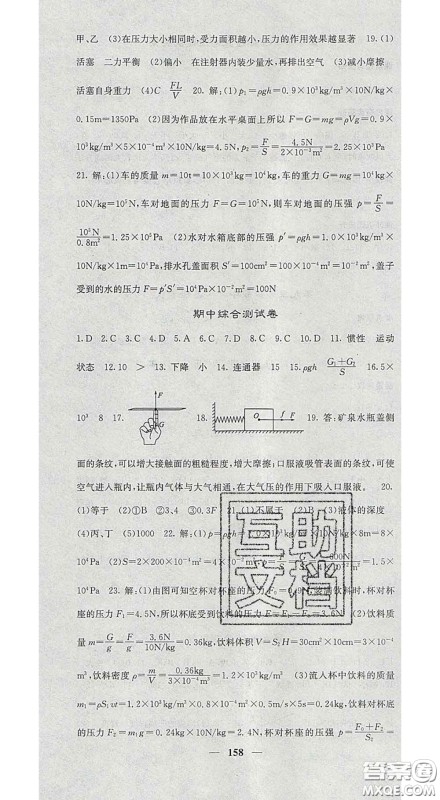 甲、乙 (3)在压力大小相同时,受力面积越小,压力的作用效果越显著 19.(1)
活塞 二力平衡 (2)偏小 在注射器内装少量水,再排出空气 (3)减小摩擦
活塞自身重力 (4)C FL/V 20. 解:(1)p₁=ρgh=0.9×10³kg/m³×10N/kg×
0.15m=1350Pa (2)因为作品放在水平桌面上所以F=G=mg=ρVg=0.9×
10³kg/m³×5×10⁻⁴m³×10N/kg=4.5N,p₂=F/S=4.5N/2×10⁻⁴m²=2.25×10⁴Pa
21. 解:(1)车的质量m=10t=10×10³kg=10⁴kg,车的重力G=mg=10⁴kg×
10N/kg=10⁵N,车对地面的压力F=G=10⁵N,则车对地面的压强p=F/S=
10⁵N/0.8m²=1.25×10⁵Pa (2)水对水箱底部的压强p′=ρ水gh=1.0×10³kg/m³×
10N/kg×1m=10⁴Pa,排水孔盖面积S′=100cm²=100×10⁻⁴m²=10⁻²m²,盖子受
到的水的压力F=p′S′=10⁴Pa×10⁻²m²=100N
期中综合测试卷
1.D 2.C 3.C 4.D 5.C 6.C 7.D 8.C 9.D 10.C 11. 惯性 运动
状态 12.10 > 13. 下降 小 14. 连通器 15. ρgh (G₁+G₂)/S 16.5×
10³ 8 17. F 18. O F 19. 答:矿泉水瓶盖侧
面的条纹,可以增大接触面的粗糙程度,增大摩擦;口服液吸管表面的条纹,可使
空气进入瓶内,让瓶内气体与大气相通,在大气压的作用下吸入口服液。 20.
(1)等于 (2)①B ②3.4 ③0.3F 21.(1)不属于 (2)B (3)液体的深度
(4)丙、丁 (5)1000 22. 解:(1)p=ρgh=1.0×10³kg/m³×10N/kg×8m=8×
10⁴Pa (2)S=2×200×10⁻⁴m²=4×10⁻²m²
10⁴Pa 23. 解:(1)由图可知空杯对杯座的压力F₀=0.9N,装满饮料时,杯对杯
座的压力F₁=4.5N,所以杯底受到饮料的压力F=F₁-F₀=3.6N (2)饮料质
量m=G/g=F/g=3.6N/10N/kg=0.36kg,饮料体积V=S₁H=30cm²×10cm=3×10⁻⁴
m³,饮料密度ρ=m/V=0.36kg/3×10⁻⁴m³=1.2×10³kg/m³ (3)流入杯中饮料的质量
m₁=ρS₁vt=1.2×10³kg/m³×0.8×10⁻⁴m²×0.5m/s×5s=0.24kg,饮料对杯底
的压力F₂=m₁g=0.24kg×10N/kg=2.4N,杯对杯座的压强p=(F₀+F₂)/S₂=
158
互助
文档
答案圈
MXQE.COM